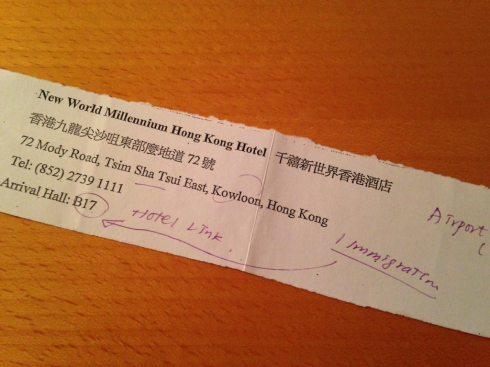 New World Millennium Hong Kong Hotel 千禧新世界香港酒店
香港九龍尖沙咀東部麼地道 72 號
72 Mody Road, Tsim Sha Tsui East, Kowloon, Hong Kong
Tel: (852) 2739 1111
Arrival Hall: B17
Hotel Link
Immigration
Airport
(